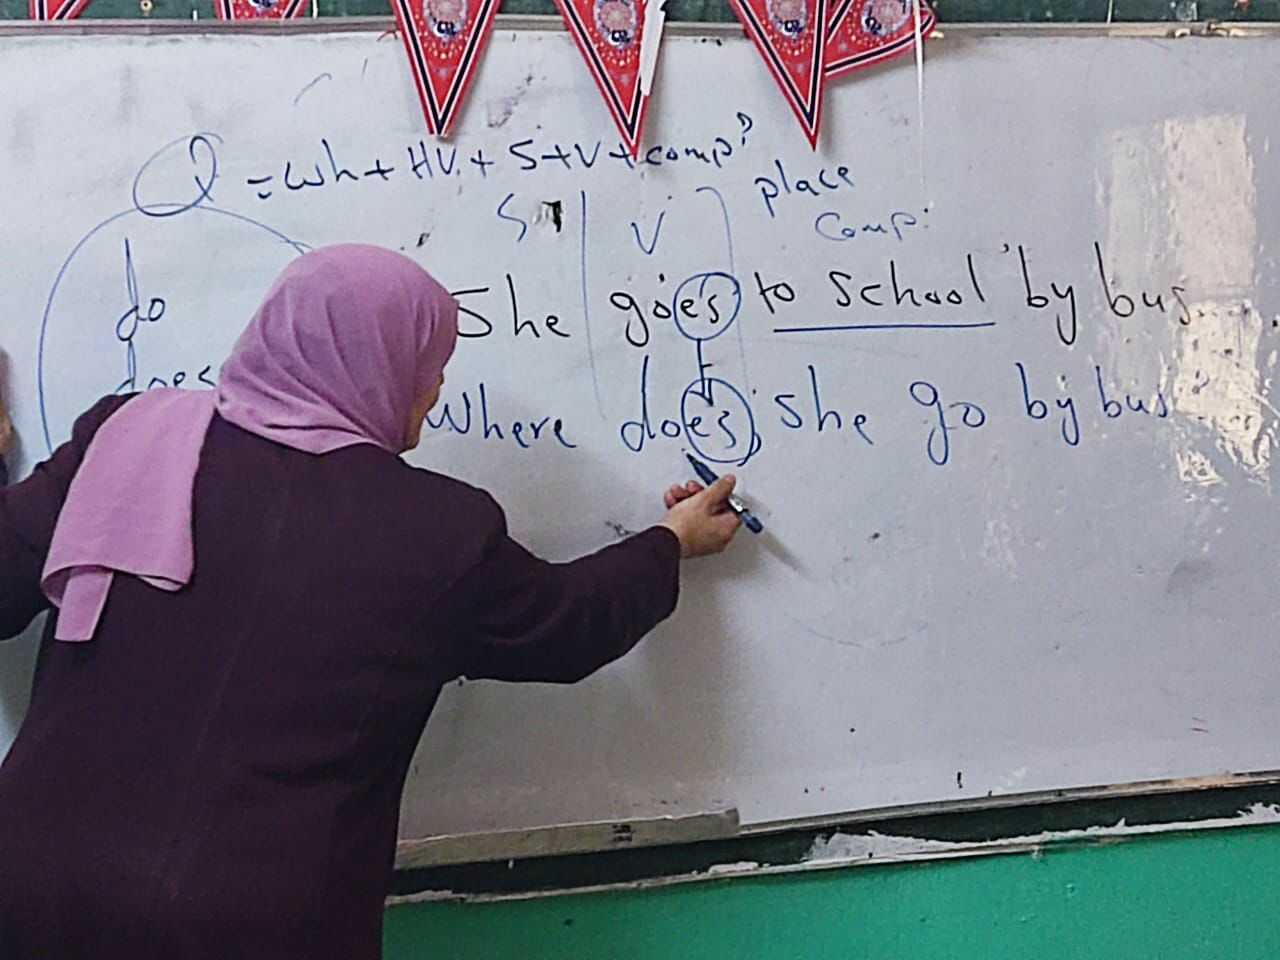 Q = Wh + HV. + S + V + comp?
S V place
Comp:
do
She goes to school by bus.
does
Where does she go by bus?